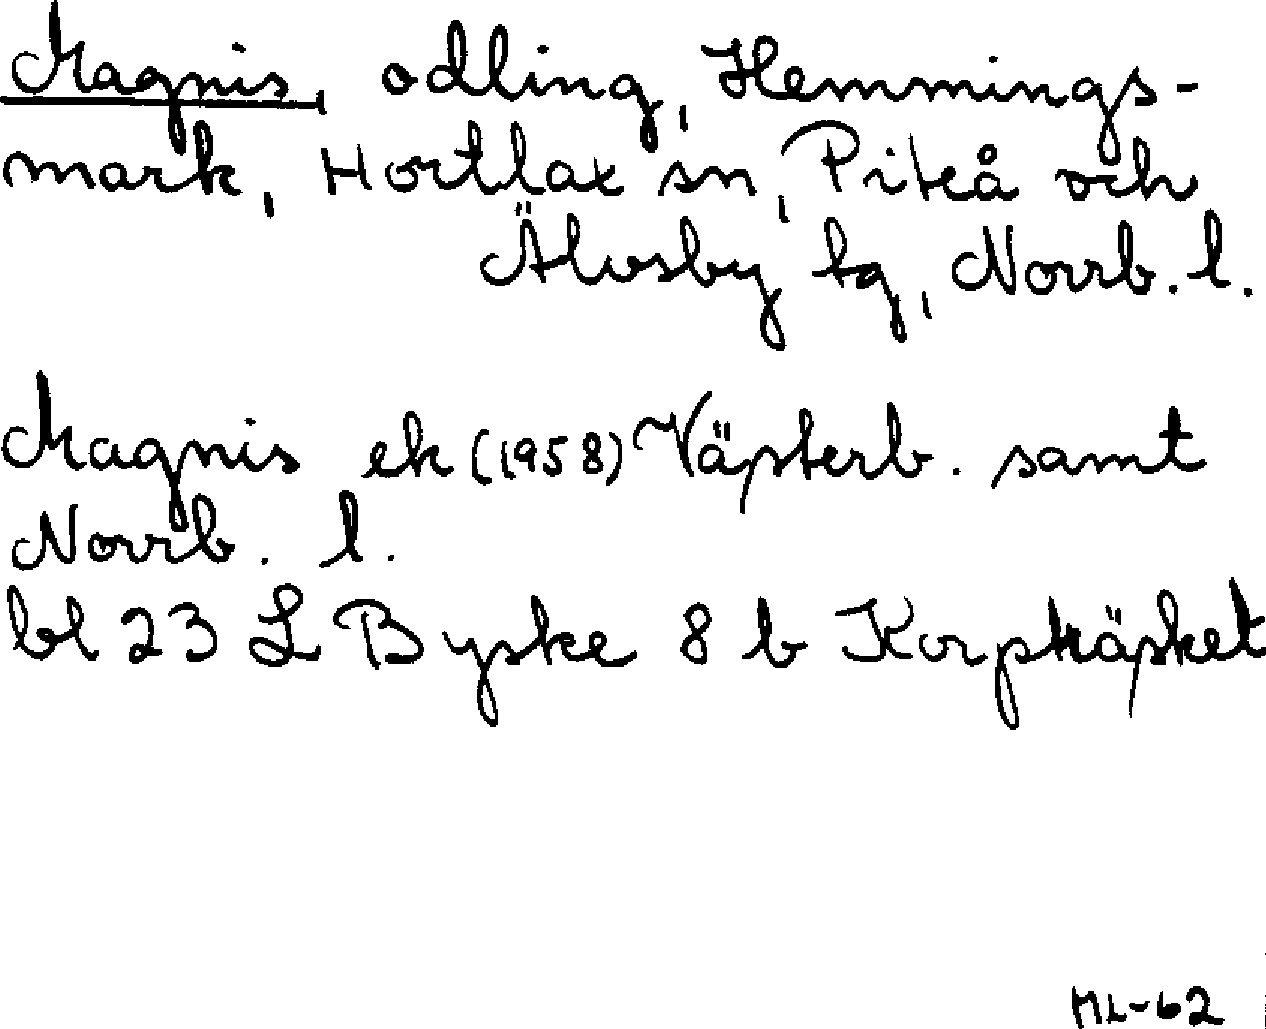 Magnis, odling, Hemmings-
mark, Hortlax sn, Piteå och
Älvsby tg, Norrb. l.
Magnis ek (1958) Västerb. samt
Norrb. l.
bl 23 L Byske 8 b Korpträsket
ML-62